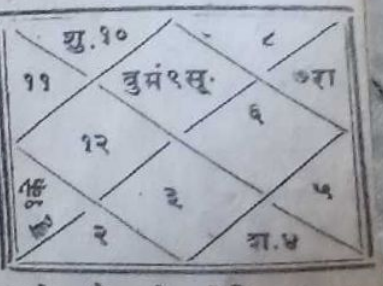 शु.१० ८
११ बुमं९सू. ७रा
६
१२
३ ५
२ श.४